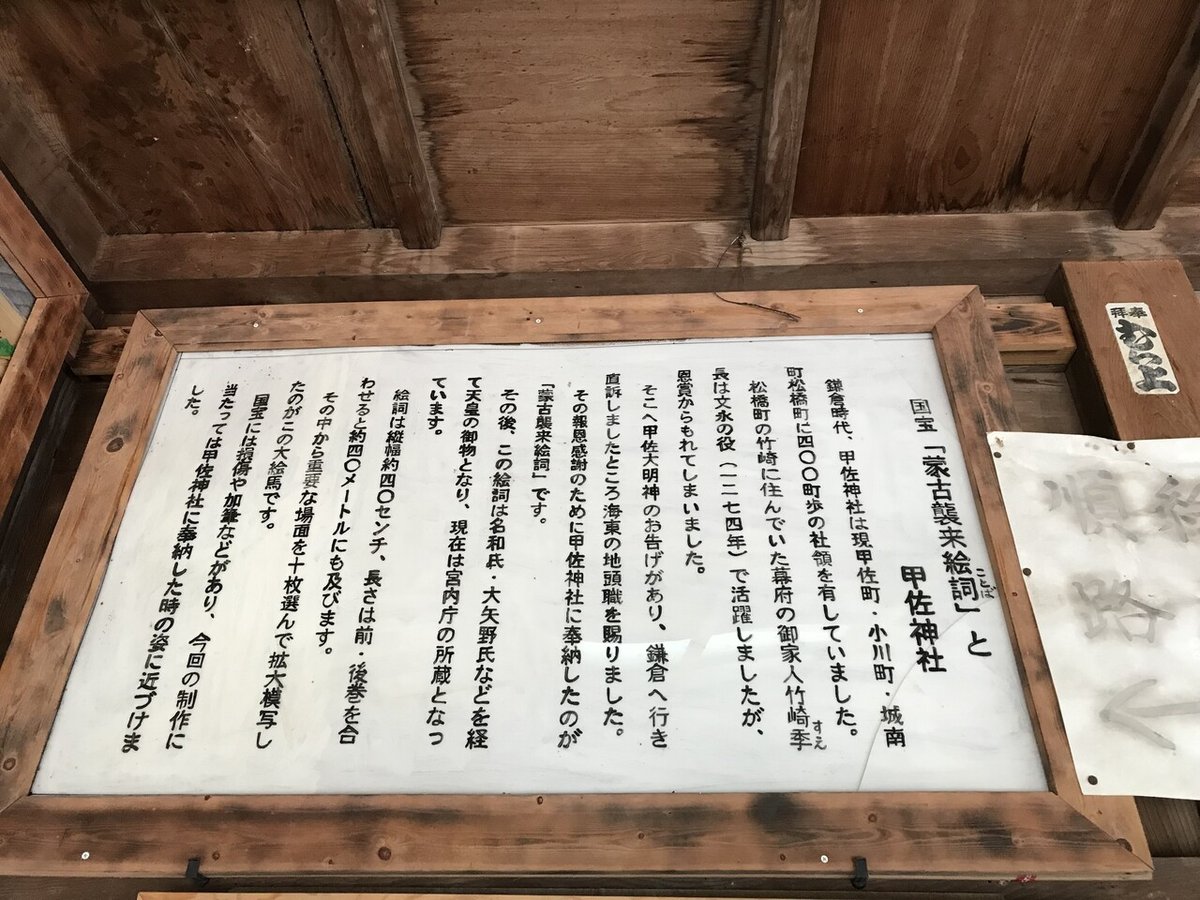 国宝「蒙古襲来絵詞」と
ことば
甲佐神社
鎌倉時代、甲佐神社は現甲佐町・小川町・城南
町松橋町に四〇〇町歩の社領を有していました。
松橋町の竹崎に住んでいた幕府の御家人竹崎季
すえ
長は文永の役（一二七四年）で活躍しましたが、
恩賞からもれてしまいました。
そこへ甲佐大明神のお告げがあり、鎌倉へ行き
直訴しましたところ海東の地頭職を賜りました。
その報恩感謝のために甲佐神社に奉納したのが
「蒙古襲来絵詞」です。
その後、この絵詞は名和氏・大矢野氏などを経
て天皇の御物となり、現在は宮内庁の所蔵となっ
ています。
絵詞は縦幅約四〇センチ、長さは前・後巻を合
わせると約四〇メートルにも及びます。
その中から重要な場面を十枚選んで拡大模写し
たのがこの大絵馬です。
国宝には損傷や加筆などがあり、今回の制作に
当たっては甲佐神社に奉納した時の姿に近づけま
した。
奉拝
むら上
順路
←